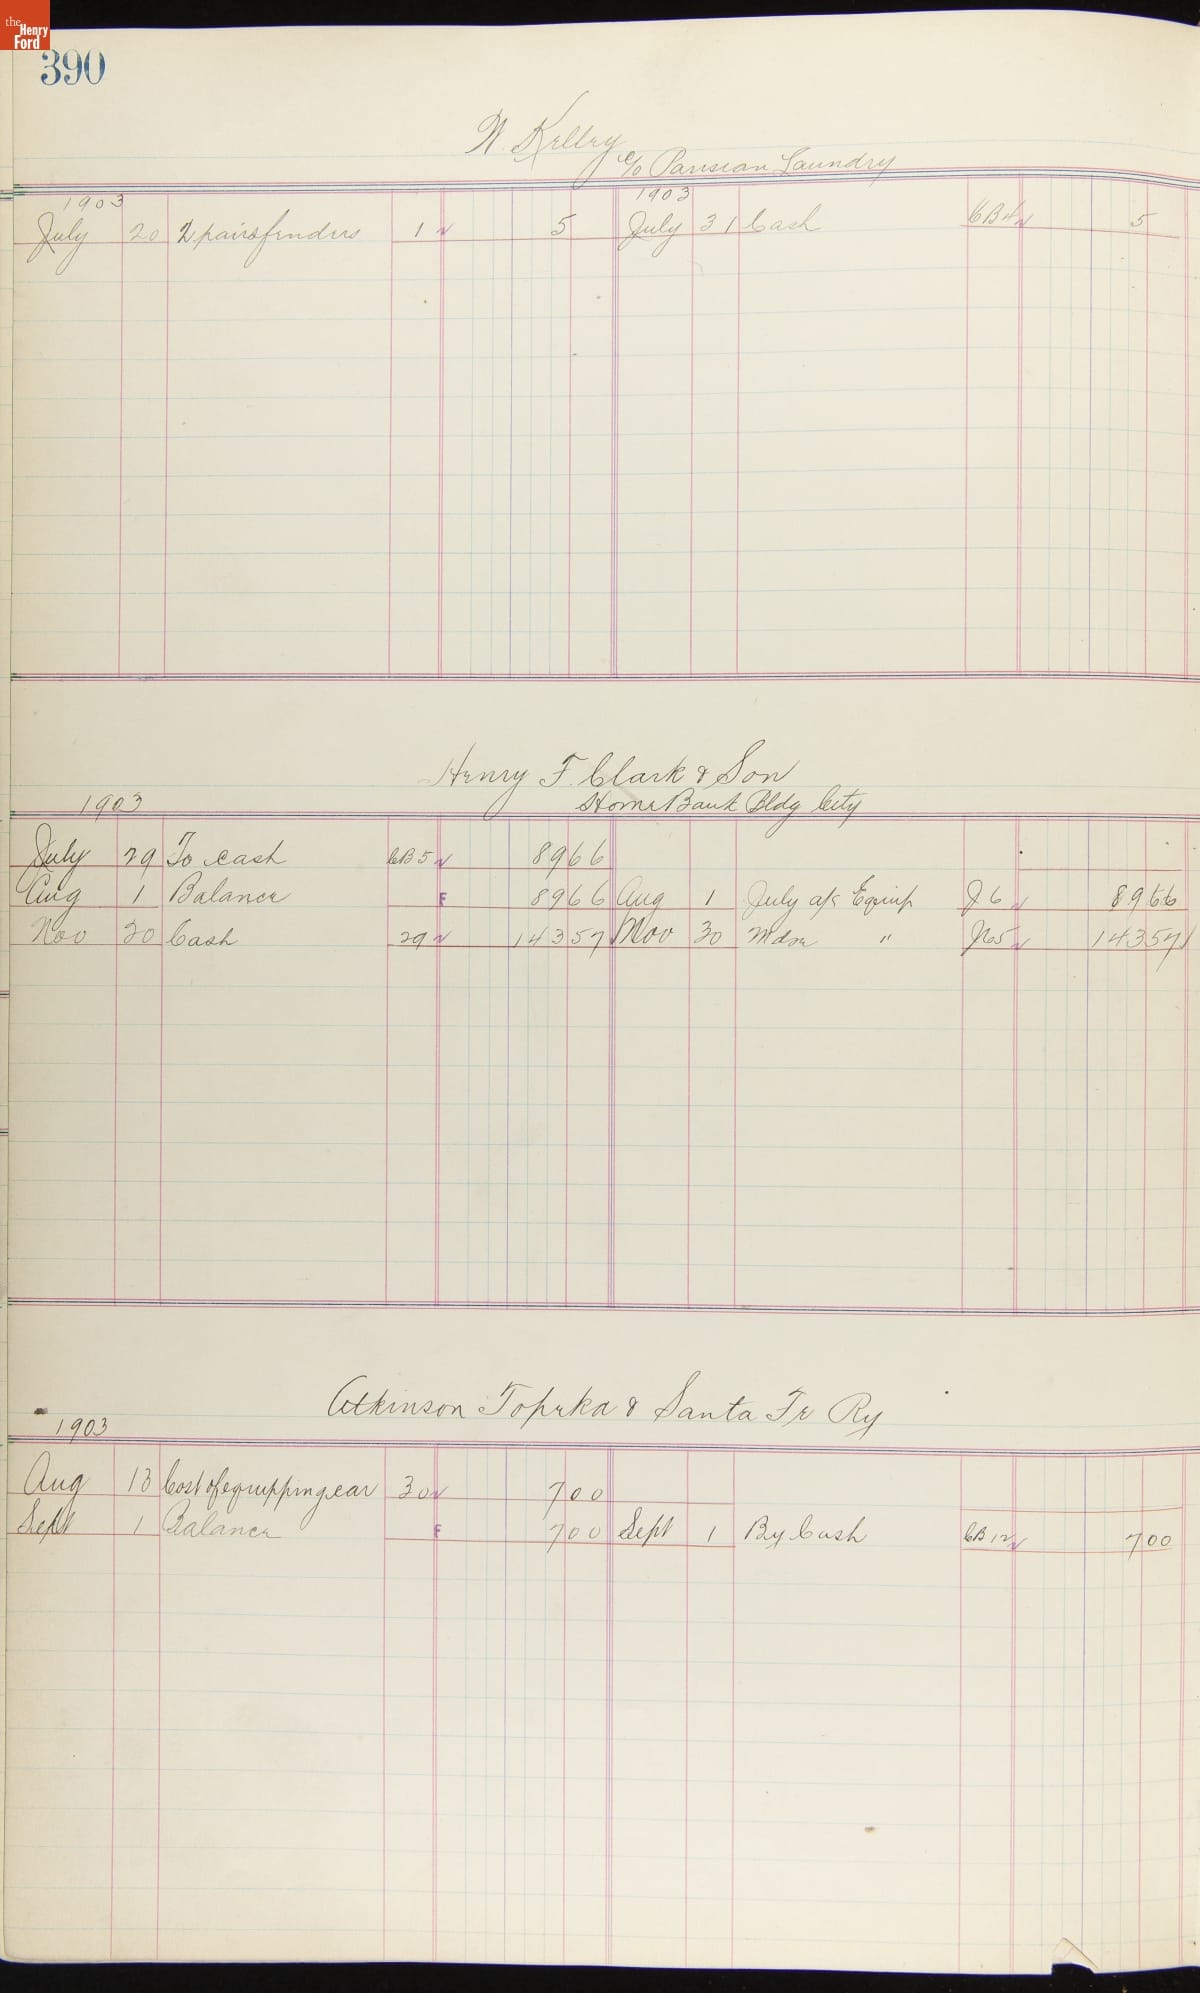 the Henry Ford
390
W. Kelley
c/o Parisian Laundry
1903 1903
July 20 2 pairs fenders 1 5 July 31 Cash CB 4 5
Henry F. Clark & Son
1903 Home Bank Bldg City
July 29 To cash CB 5 89 66
Aug 1 Balance F 89 66 Aug 1 July a/c Equip J 6 89 66
Nov 30 Cash 29 143 57 Nov 30 Mdse " 143 57
Atkinson Topeka & Santa Fe Ry
1903
Aug 13 Cost of equipping car 30 7 00
Sept 1 Balance F 7 00 Sept 1 By Cash CB 12 7 00